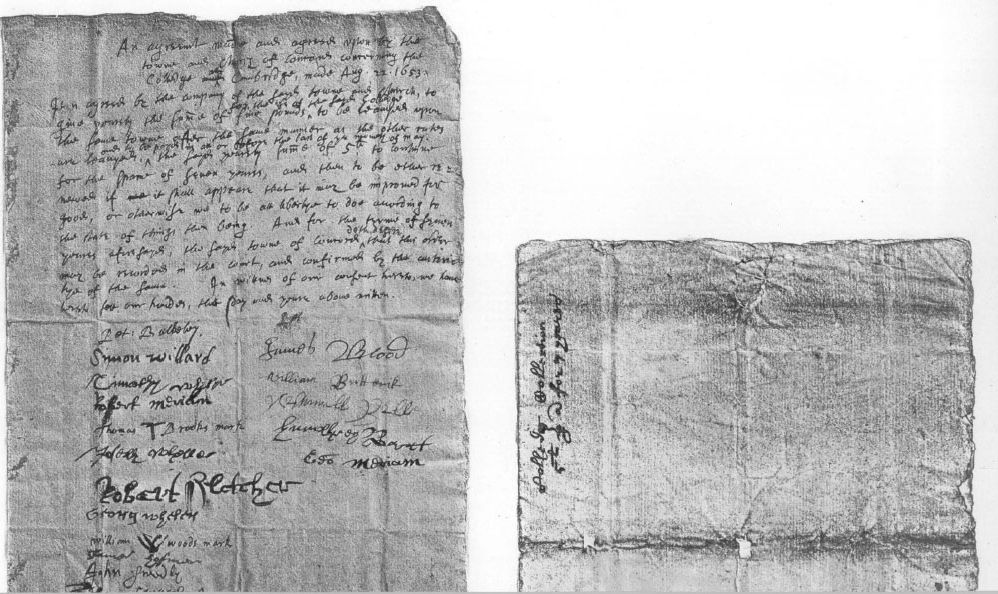 An agreemt made and agreed upon by the
towne and church of Concord concerning the
Colledge att Cambridge, made Aug. 22. 1653.
It is agreed by the company of the sayd towne and church, to
for the use of the sayd Colledge
give yearly the summe of five pounds, to be leavyed upon
the same towne after the same manner as the other rates
and to be payd in on or before the last of ye of may
are leavyed, the sayd yearly summe of 5ˡⁱ to continue
for the space of seven years, and then to be either re
newed if it shall appeare that it may be improved for
good, or otherwise we to be at libertye to doe according to
the state of things then being. And for the terme of seven
doth desire
years aforesayd, the sayd towne of Concord, that this order
may be recorded in the court, and confirmed by the authori
tye of the same. In witnes of our consent hereto, we have
sett our handes, the day and yeare above written.
Pet: Bulkeley.
Simon Willard
Timothy Wheler
Robert Meriam
Thomas T Brooks mark
Joseph Wheeler
Robert Fletcher
Georg Wheler
William woods mark
Thomas
John Smedly
James Blood
William Buttrick
Humphrey Barat
Geo Meriam